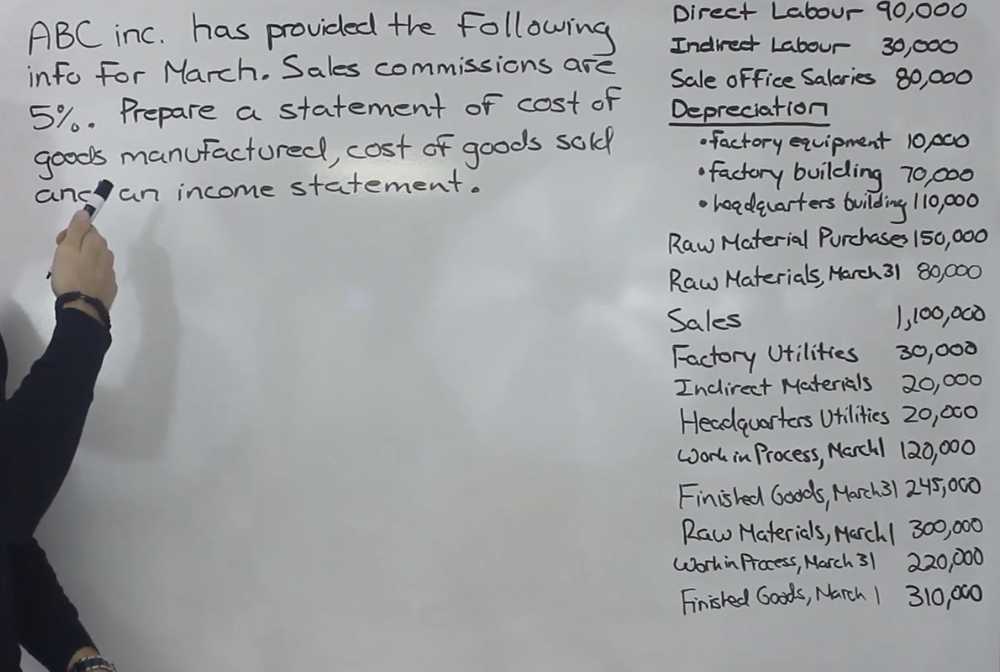 ABC inc. has provided the Following
info For March. Sales commissions are
5%. Prepare a statement of cost of
goods manufactured, cost of goods sold
and an income statement.
Direct Labour 90,000
Indirect Labour 30,000
Sale office Salaries 80,000
Depreciation
• factory equipment 10,000
• factory building 70,000
• headquarters building 110,000
Raw Material Purchases 150,000
Raw Materials, March 31 80,000
Sales 1,100,000
Factory Utilities 30,000
Indirect Materials 20,000
Headquarters Utilities 20,000
Work in Process, March 1 120,000
Finished Goods, March 31 245,000
Raw Materials, March 1 300,000
Work in Process, March 31 220,000
Finished Goods, March 1 310,000